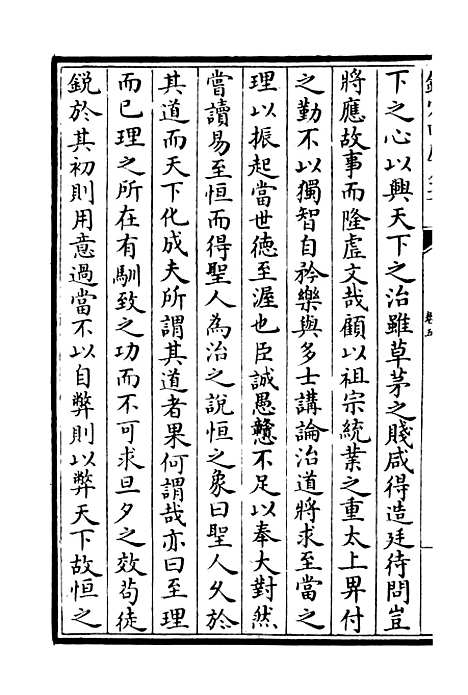 下之心以興天下之治雖草茅之賤咸得造廷待問豈
將應故事而隆虛文哉顧以祖宗統業之重太上畀付
之勤不以獨智自矜樂與多士講論治道將求至當之
理以振起當世德至渥也臣誠愚戇不足以奉大對然
嘗讀易至恒而得聖人為治之說恒之象曰聖人久於
其道而天下化成夫所謂其道者果何謂哉亦曰至理
而已理之所在有馴致之功而不可求旦夕之效苟徒
銳於其初則用意過當不以自弊則以弊天下故恒之